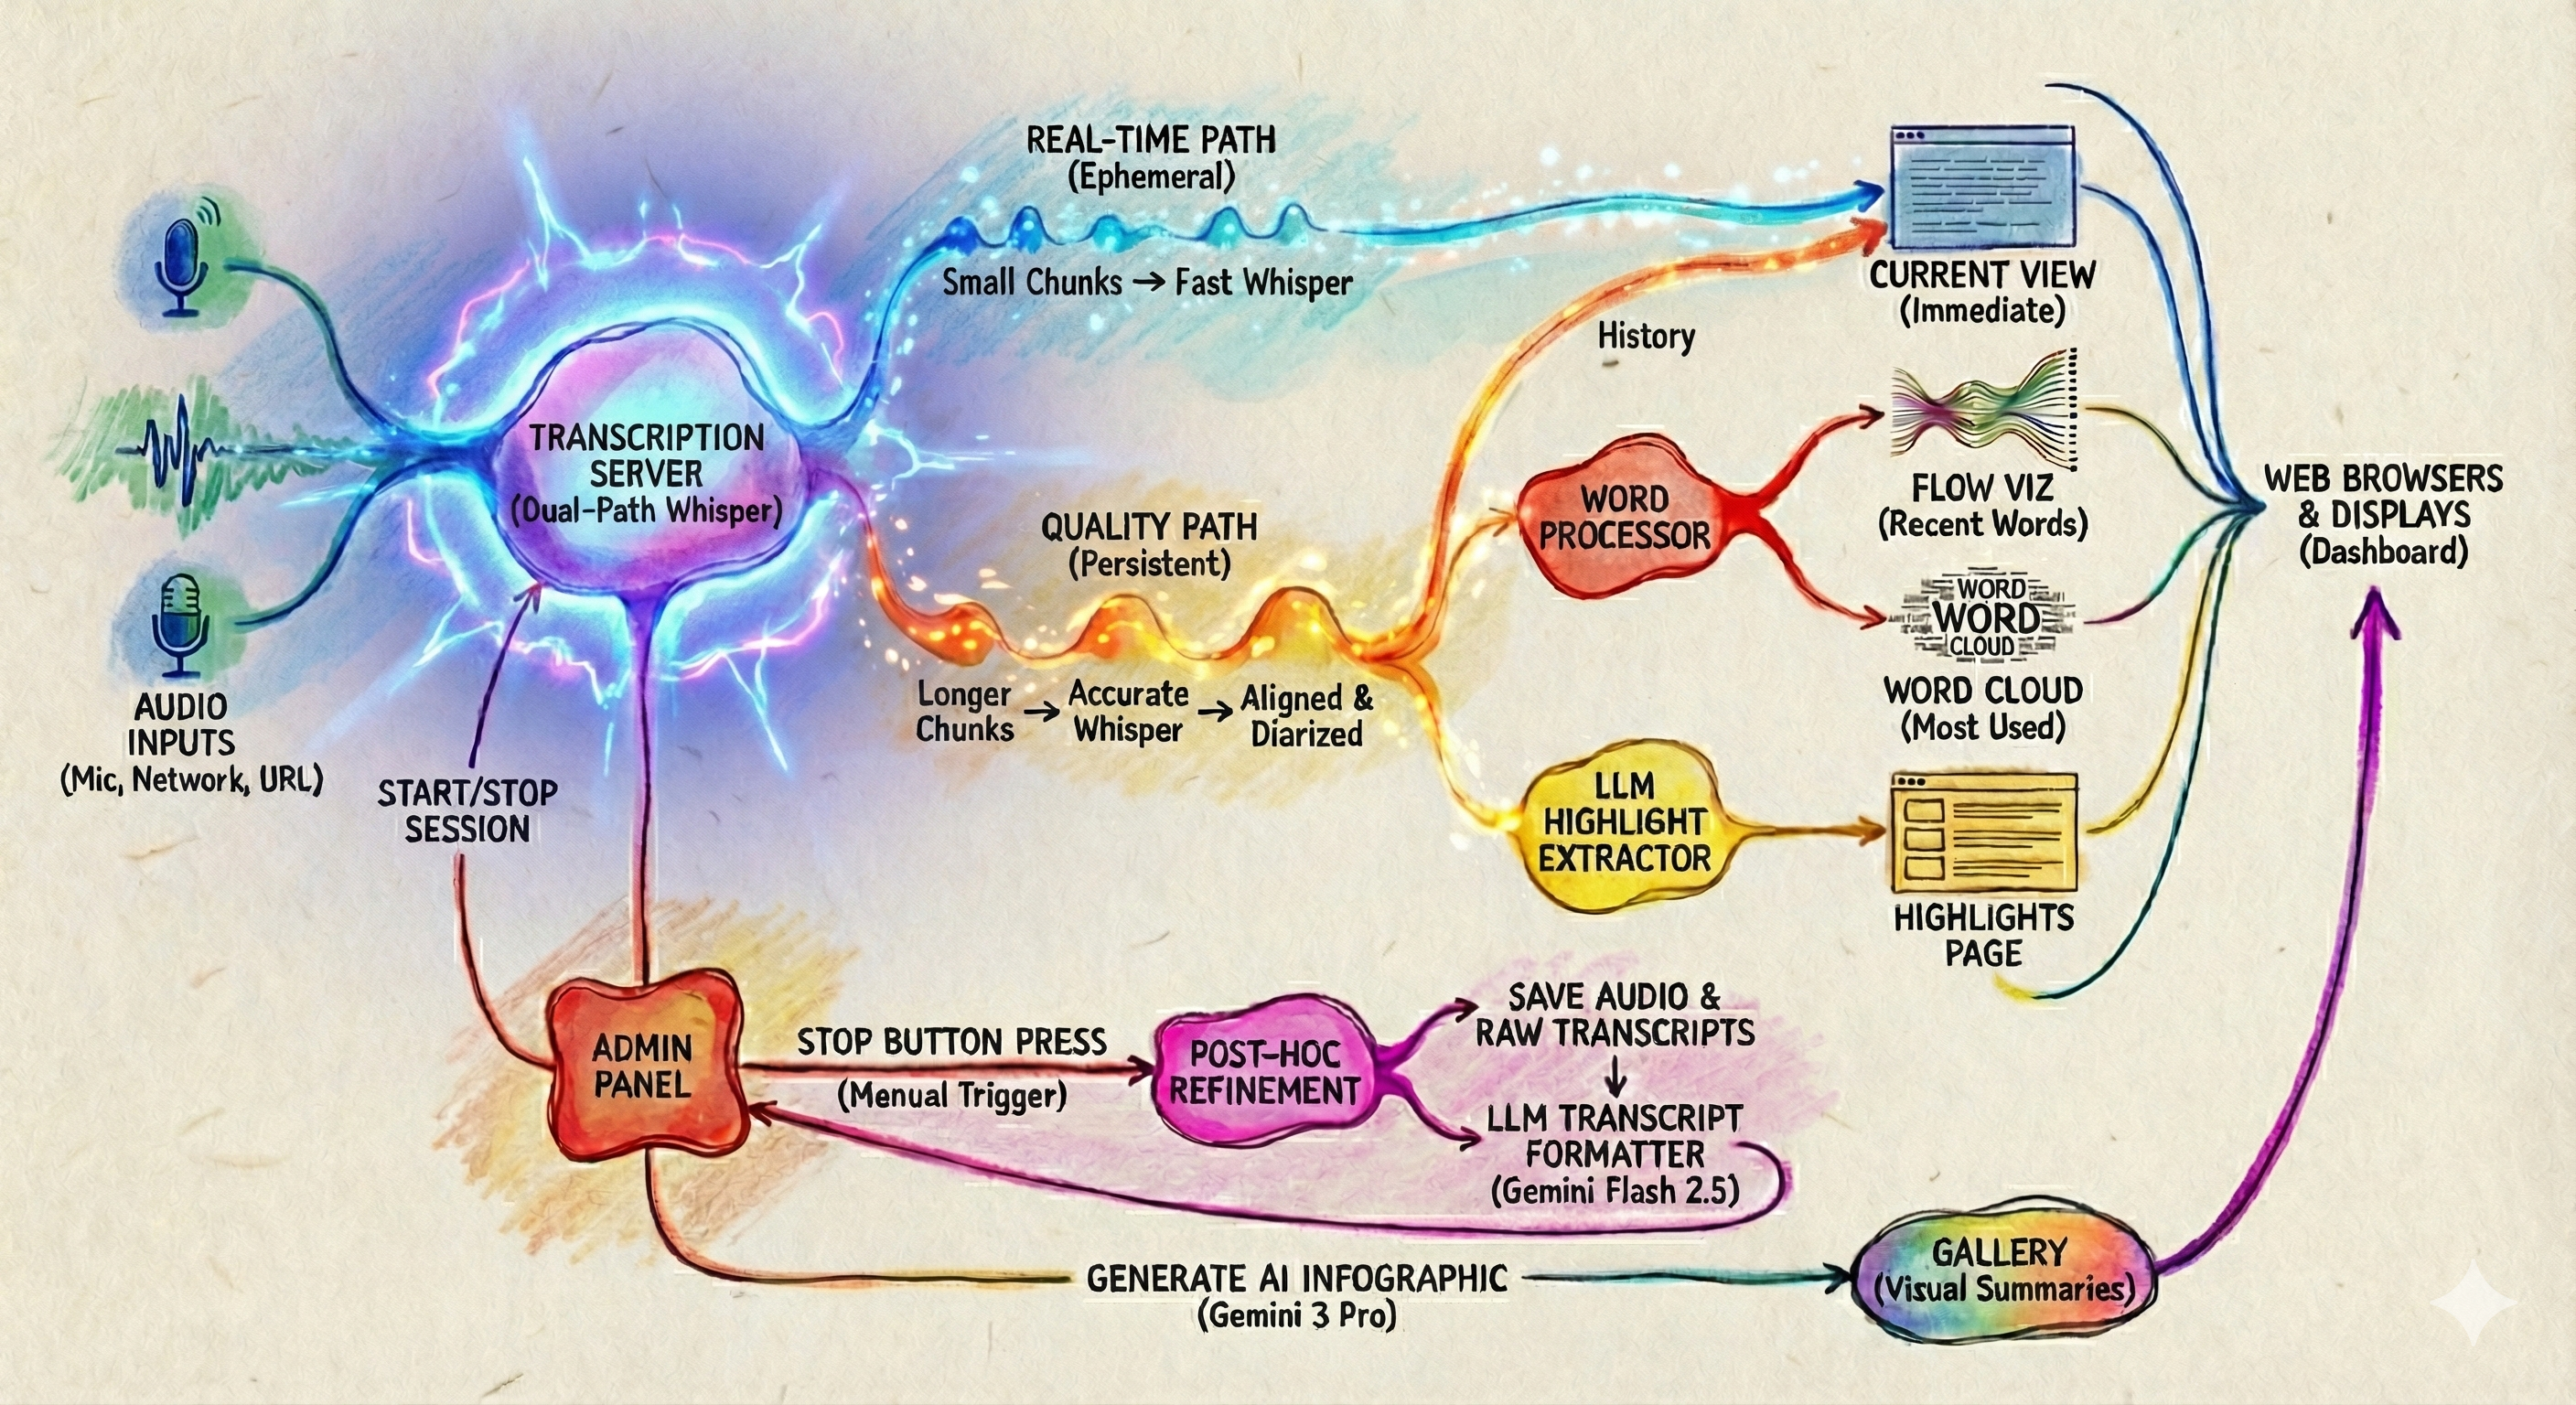 REAL-TIME PATH
(Ephemeral)
Small Chunks → Fast Whisper
CURRENT VIEW
(Immediate)
History
TRANSCRIPTION
SERVER
(Dual-Path Whisper)
AUDIO
INPUTS
(Mic, Network, URL)
START/STOP
SESSION
QUALITY PATH
(Persistent)
Longer
Chunks
→ Accurate
Whisper
→ Aligned &
Diarized
WORD
PROCESSOR
FLOW VIZ
(Recent Words)
WORD
WORD
CLOUD
WORD CLOUD
(Most Used)
WEB BROWSERS
& DISPLAYS
(Dashboard)
LLM
HIGHLIGHT
EXTRACTOR
HIGHLIGHTS
PAGE
ADMIN
PANEL
STOP BUTTON PRESS
(Menual Trigger)
POST-HOC
REFINEMENT
SAVE AUDIO &
RAW TRANSCRIPTS
LLM TRANSCRIPT
FORMATTER
(Gemini Flash 2.5)
GENERATE AI INFOGRAPHIC
(Gemini 3 Pro)
GALLERY
(Visual Summaries)